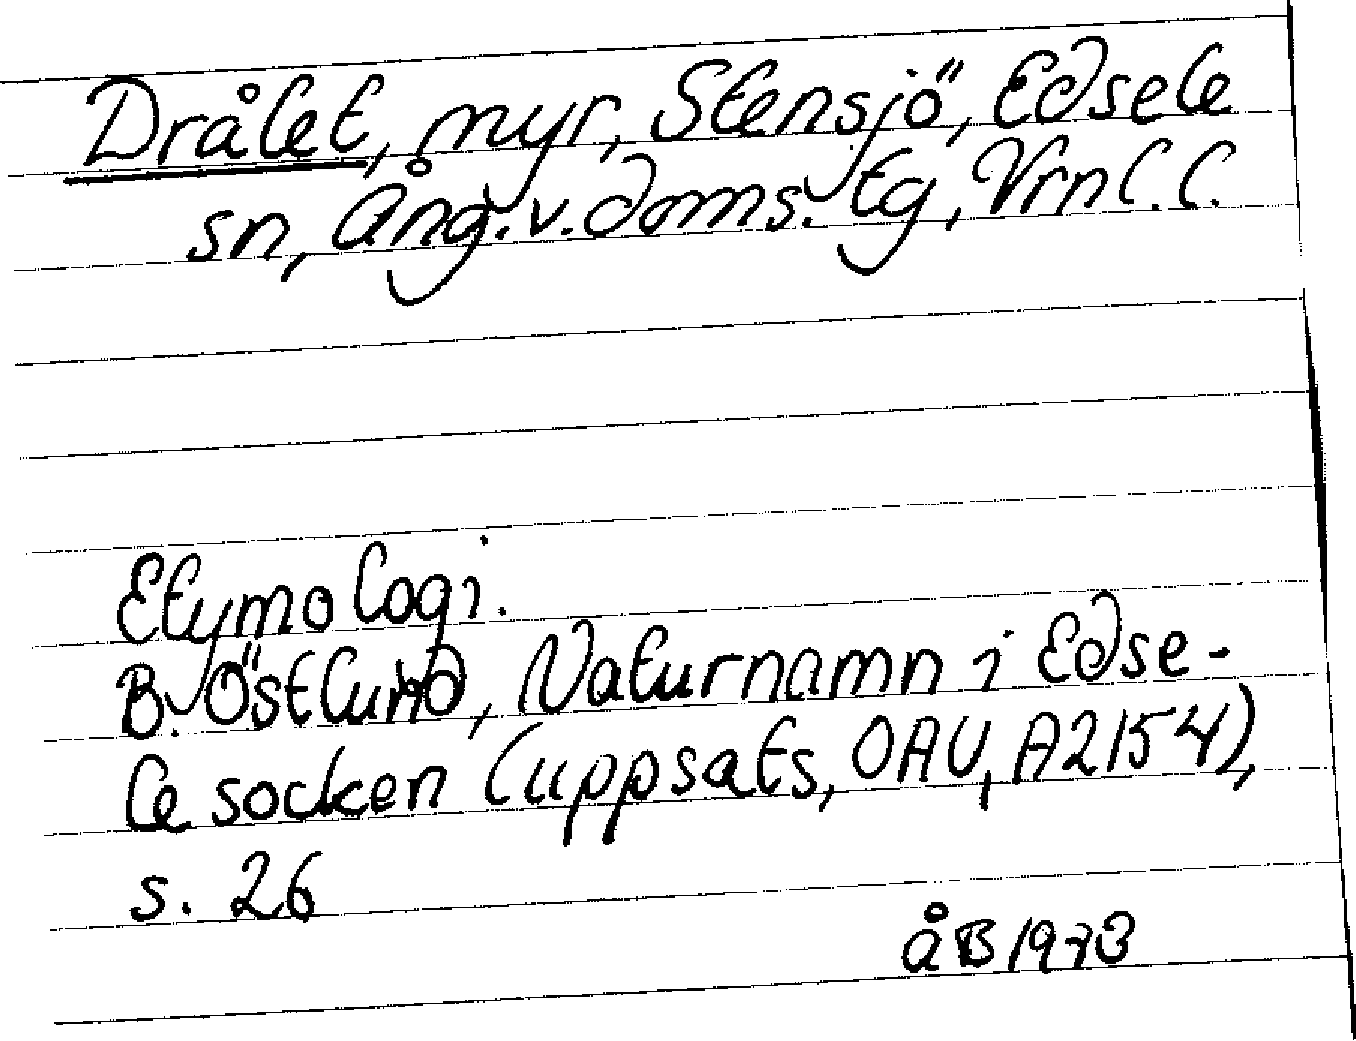 Drålet, myr, Stensjö, Edsele
sn, Ång.v.doms. tg, Vrnl.l.
Etymologi.
B. Östlund, Naturnamn i Edse-
le socken (uppsats, OAU, A2154),
s. 26
åB 1973